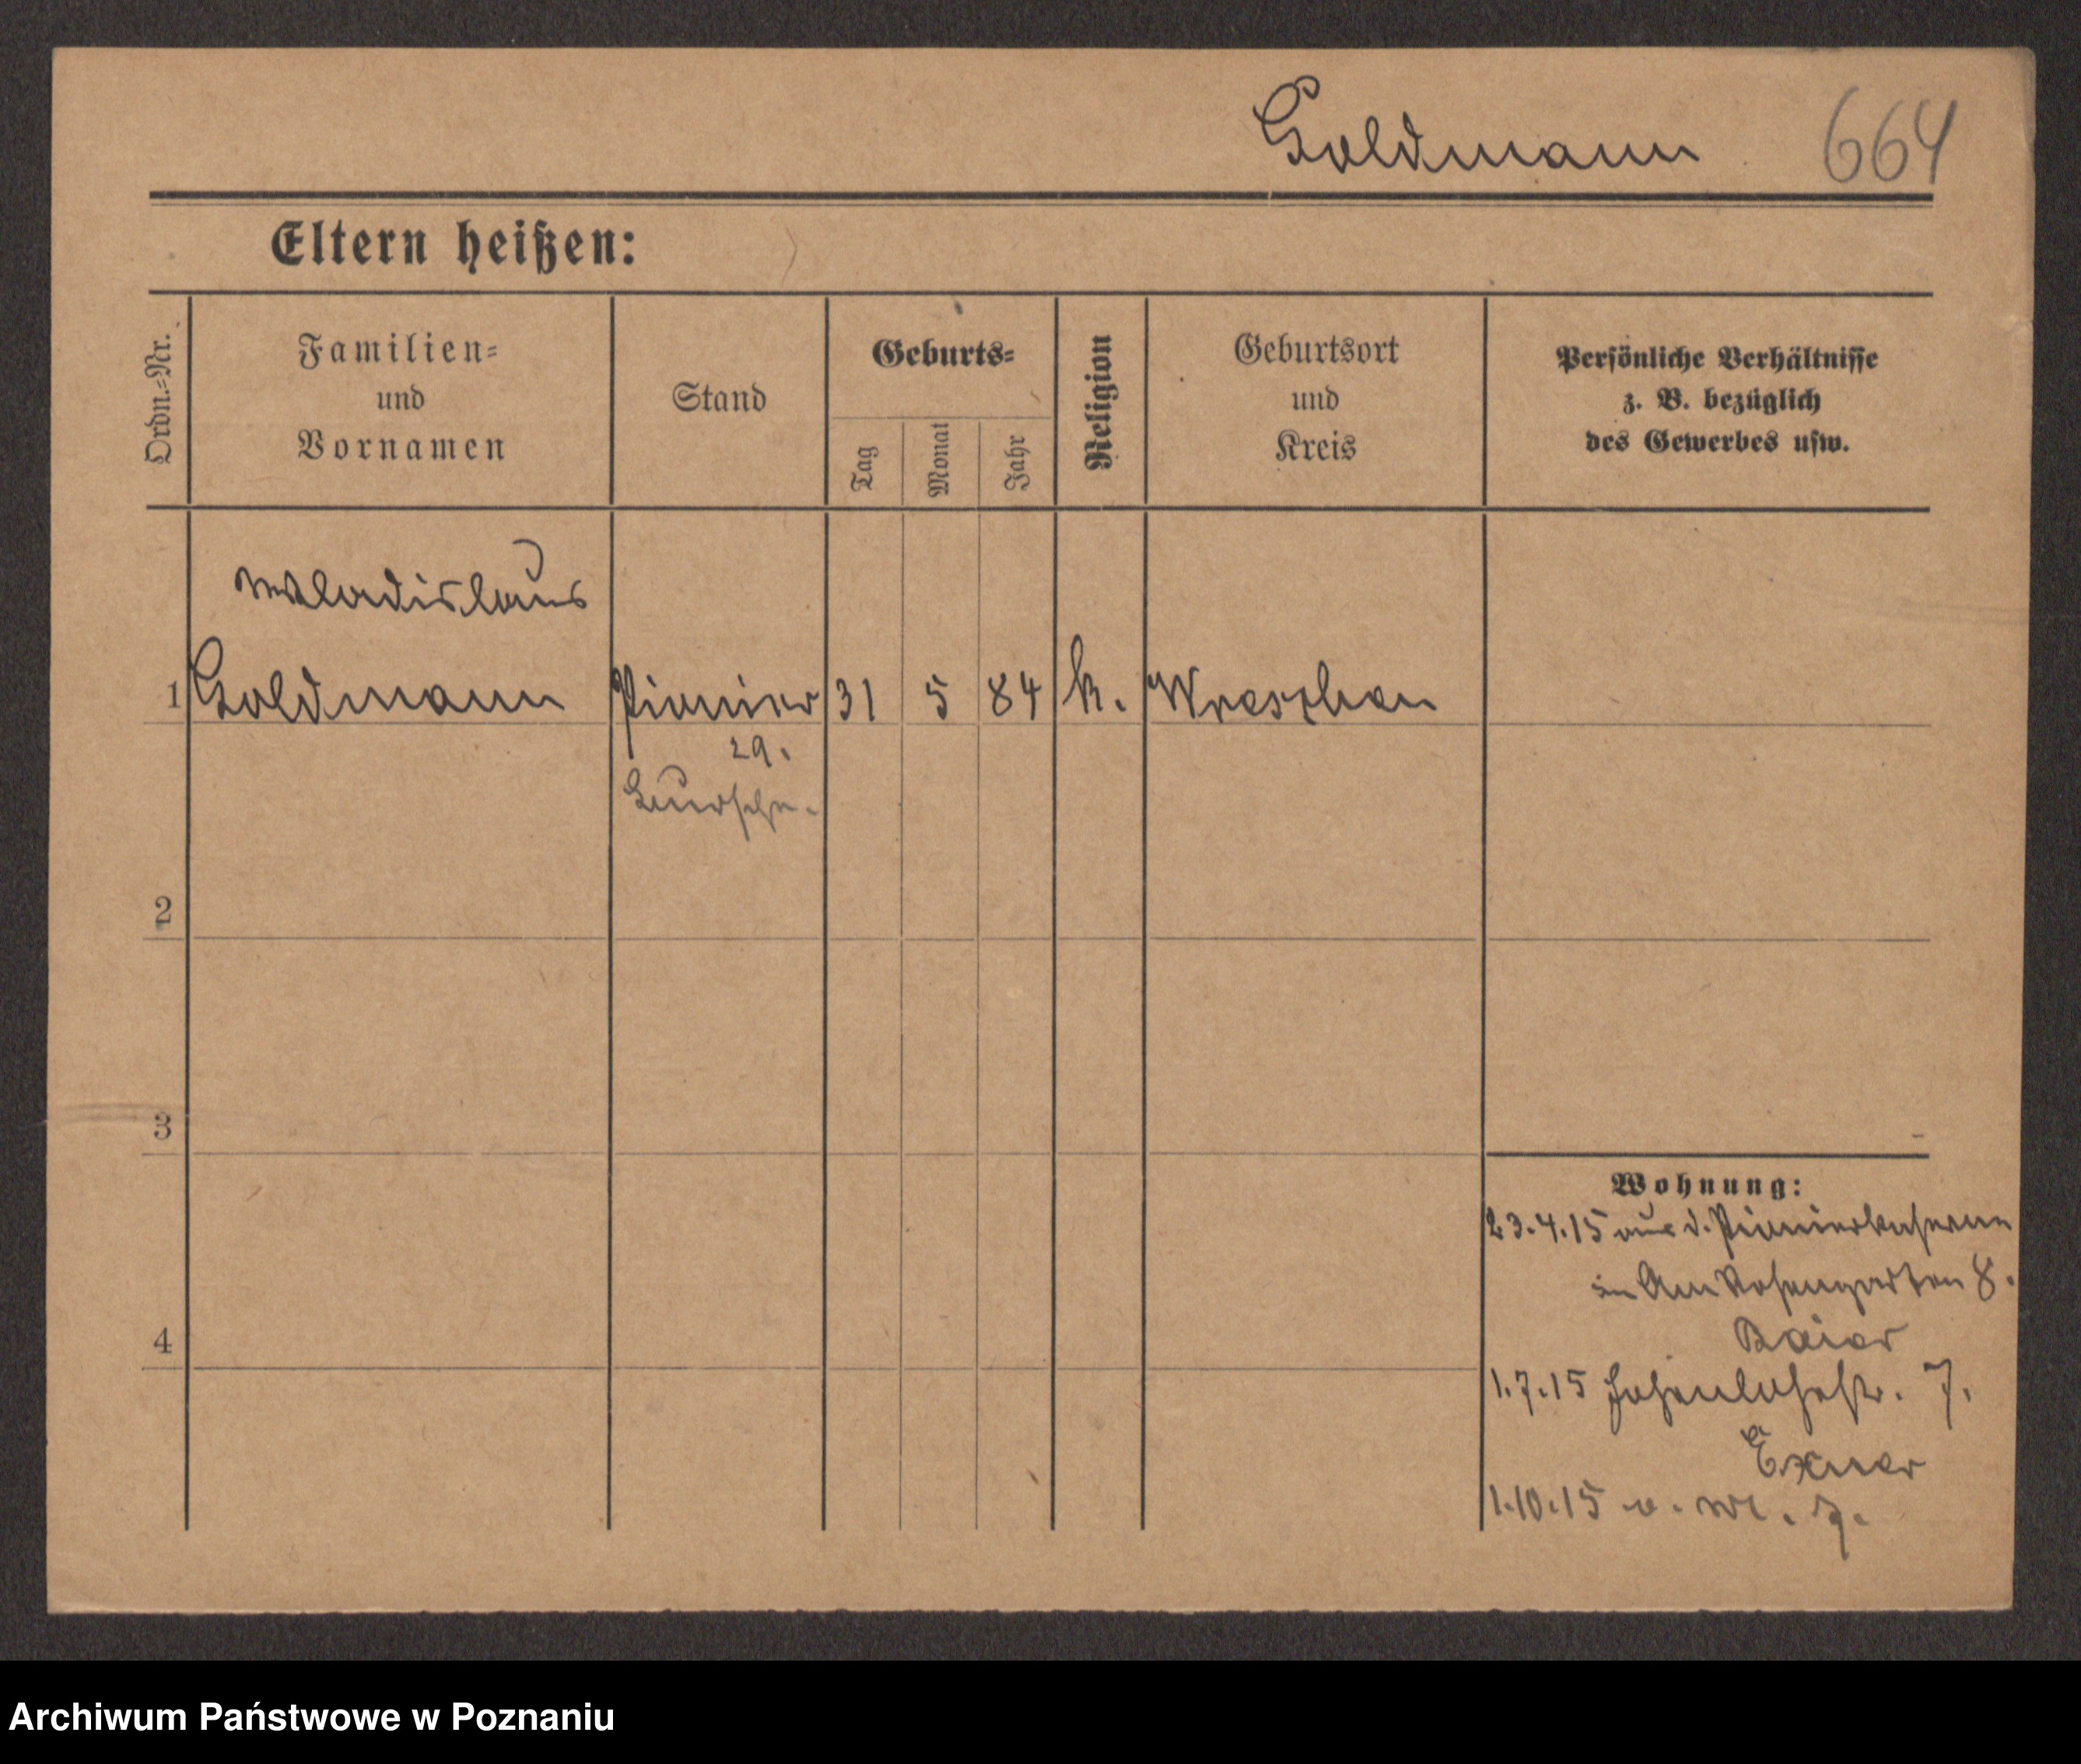 Goldmann 664
Eltern heißen:
Ordn.=Nr.
Familien=
und
Vornamen
Stand
Geburts=
Tag
Monat
Jahr
Religion
Geburtsort
und
Kreis
Persönliche Verhältnisse
z. B. bezüglich
des Gewerbes usw.
Wladislaus
1 Goldmann Pionier 31 5 84 k. Wreschen
29.
2
3
4
Wohnung:
23.4.15 aus d. Pionierkaserne
in Am Rosengarten 8.
Baier
1.7.15 Hohenlohestr. 7.
Exner
1.10.15
Archiwum Państwowe w Poznaniu